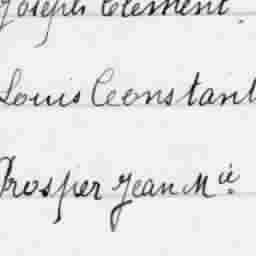 Joseph Clément.
Louis Constant
Prosper Jean Mie